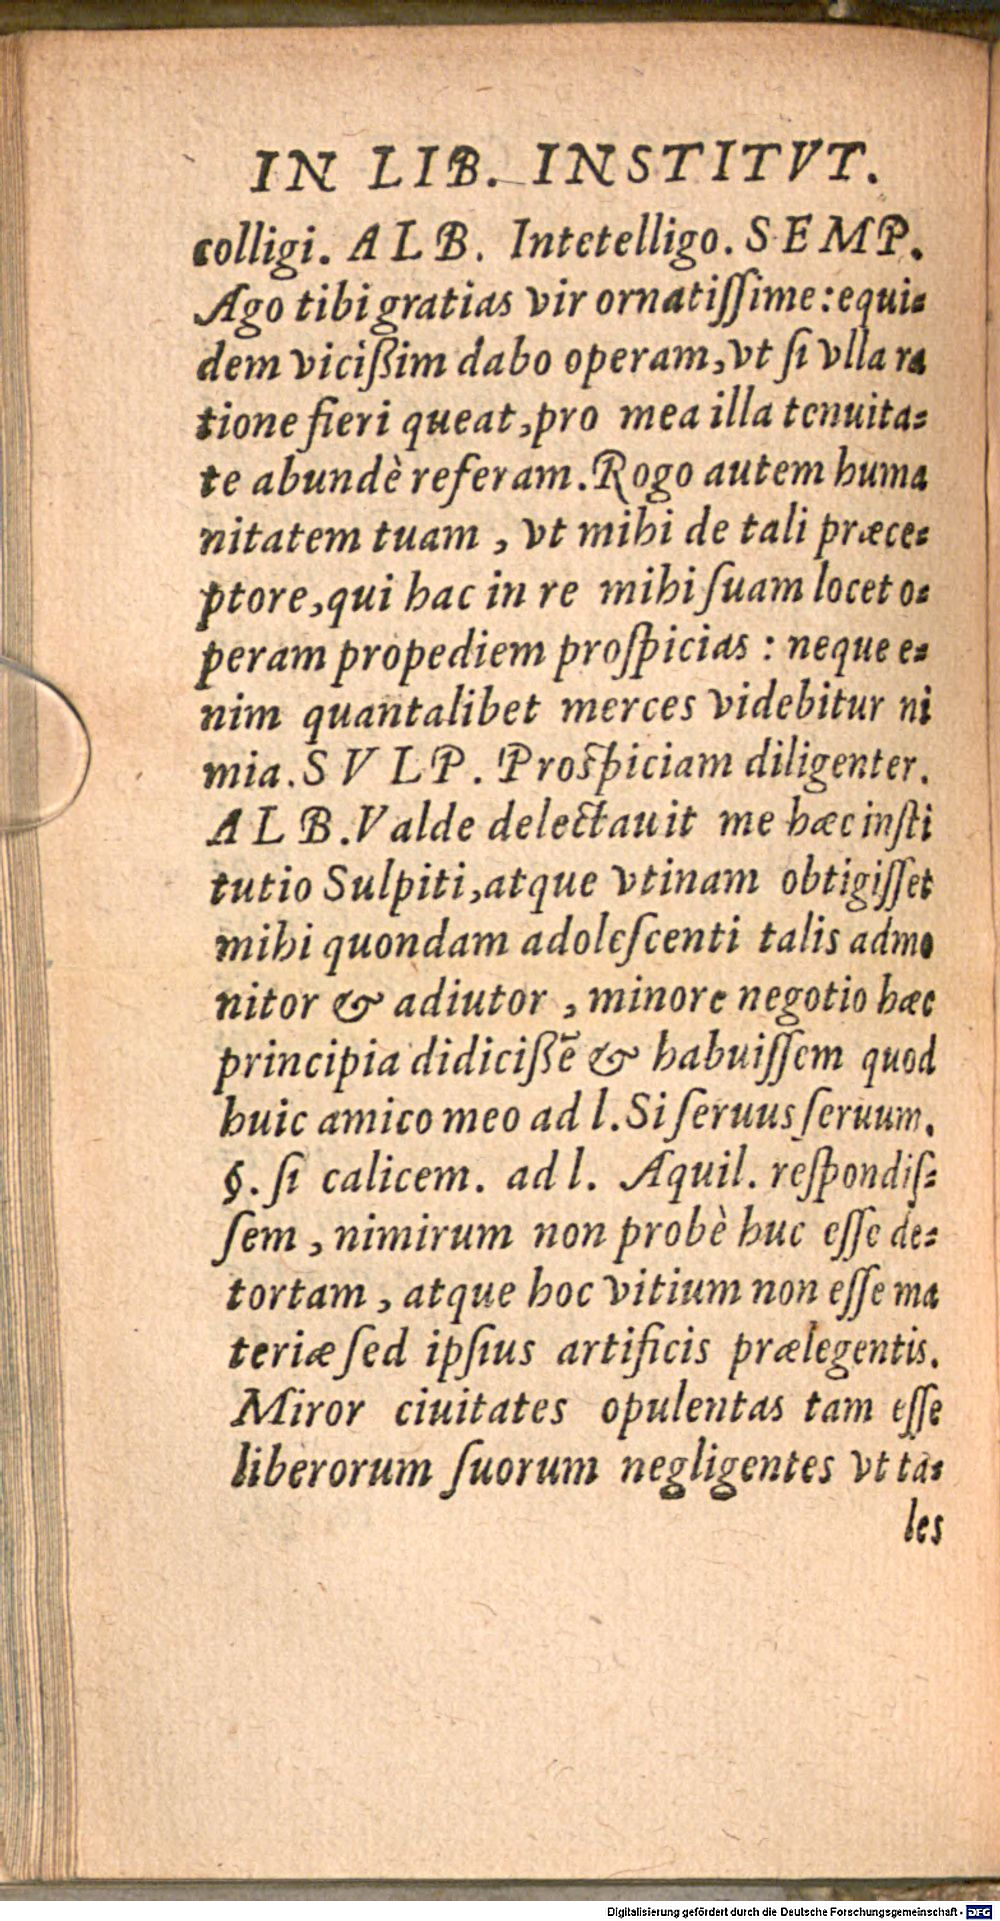 IN LIB. INSTITVT.
colligi. ALB. Intetelligo. SEMP.
Ago tibi gratias vir ornatiſſime: equi⸗
dem vicißim dabo operam, vt ſi vlla ra
tione fieri queat, pro mea illa tenuita⸗
te abundè referam. Rogo autem huma
nitatem tuam, vt mihi de tali præce⸗
ptore, qui hac in re mihi ſuam locet o⸗
peram propediem proſpicias: neque e⸗
nim quantalibet merces videbitur ni
mia. SVLP. Proſpiciam diligenter.
ALB. Valde delectauit me hæc inſti
tutio Sulpiti, atque vtinam obtigiſſet
mihi quondam adoleſcenti talis admo
nitor & adiutor, minore negotio hæc
principia didicißẽ & habuiſſem quod
huic amico meo ad l. Si ſeruus ſeruum.
§. ſi calicem. ad l. Aquil. reſpondiſ⸗
ſem, nimirum non probè huc eſſe de⸗
tortam, atque hoc vitium non eſſe ma
teriæ ſed ipſius artificis prælegentis.
Miror ciuitates opulentas tam eſſe
liberorum ſuorum negligentes vt ta⸗
les
Digitalisierung gefördert durch die Deutsche Forschungsgemeinschaft - DFG